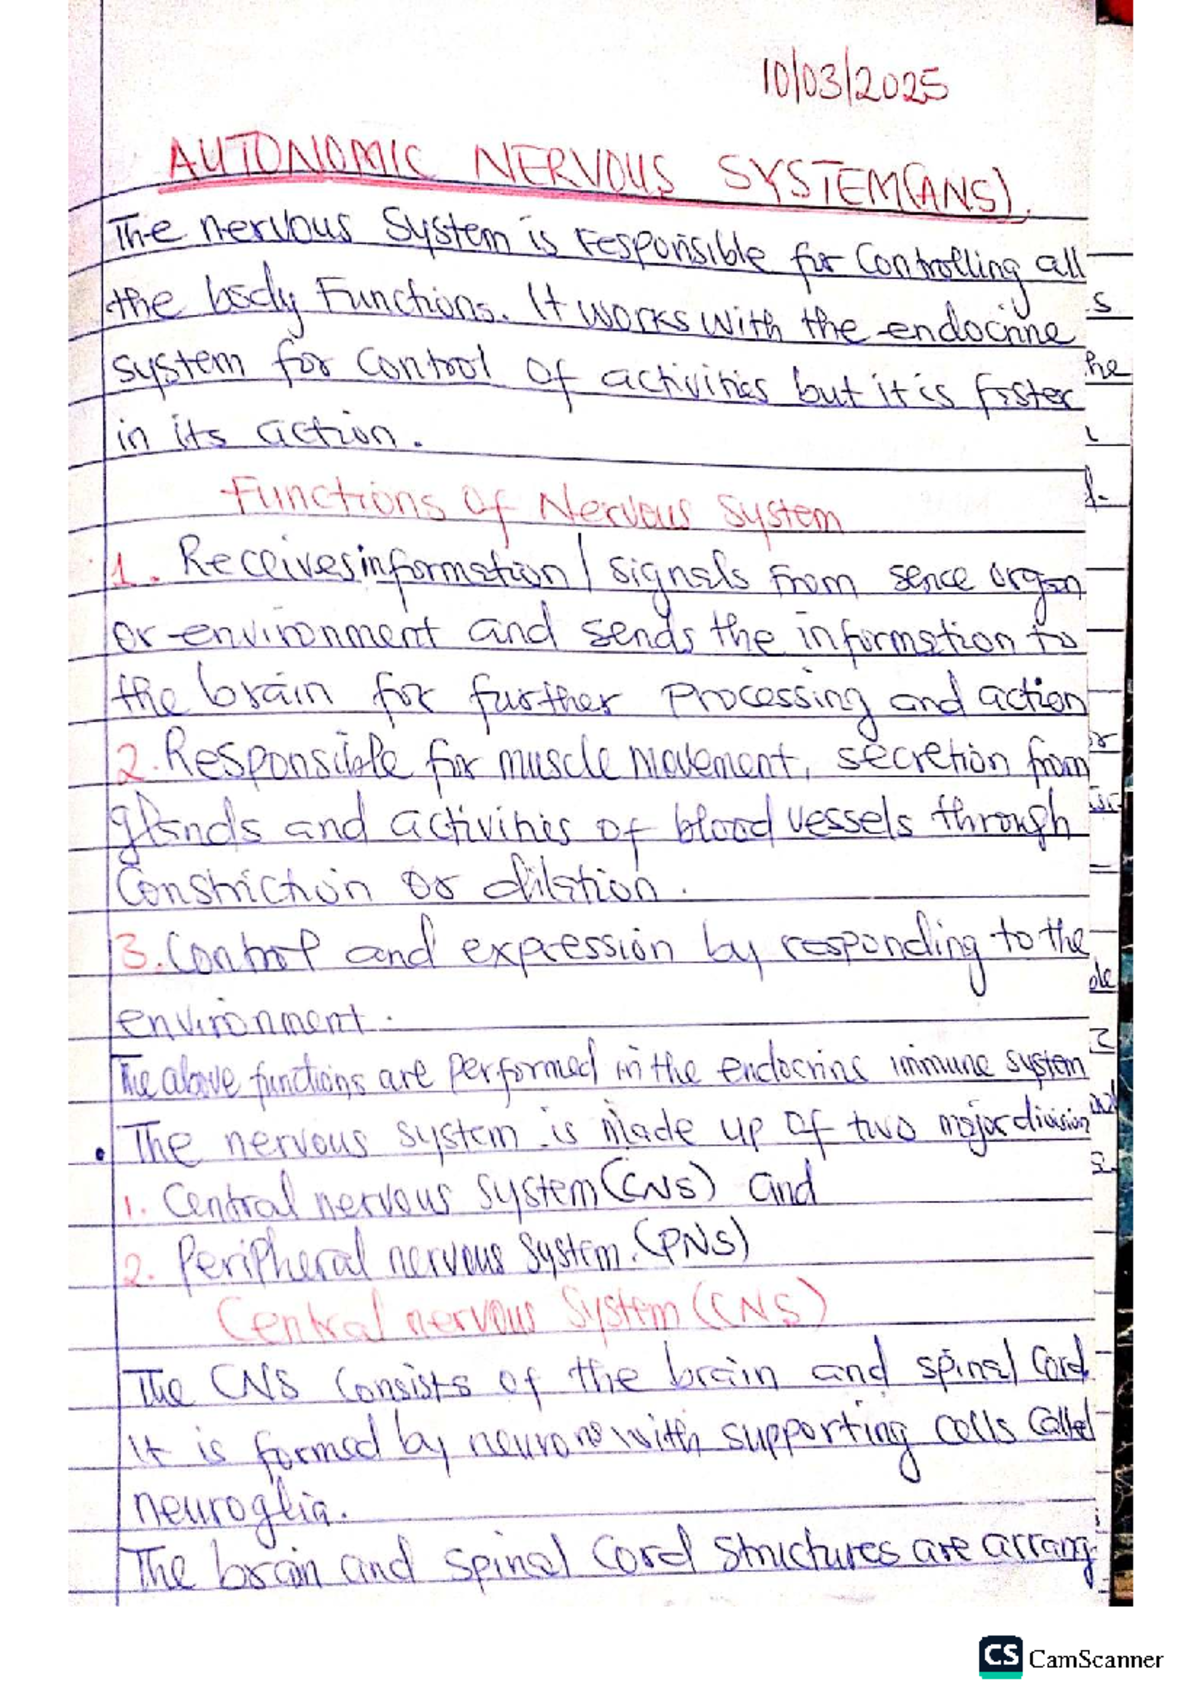 10/03/2025
AUTONOMIC NERVOUS SYSTEM(ANS).
The nervous System is responsible for Controlling all
the body Functions. It works with the endocrine
system for control of activities but it is faster
in its action.
Functions of Nervous System
1. Receives information / signals from sence organ
or environment and sends the information to
the brain for further processing and action
2. Responsible for muscle movement, secretion from
glands and activities of blood vessels through
Constriction or dilation.
3. Control and expression by responding to the
environment.
The above functions are performed in the endocrine immune system
• The nervous system is made up of two major division
1. Central nervous system (CNS) and
2. Peripheral nervous system. (PNS)
Central nervous System (CNS)
The CNS consists of the brain and spinal Cord
It is formed by neurons with supporting cells called
neuroglia.
The brain and spinal Cord structures are arrang
CS CamScanner